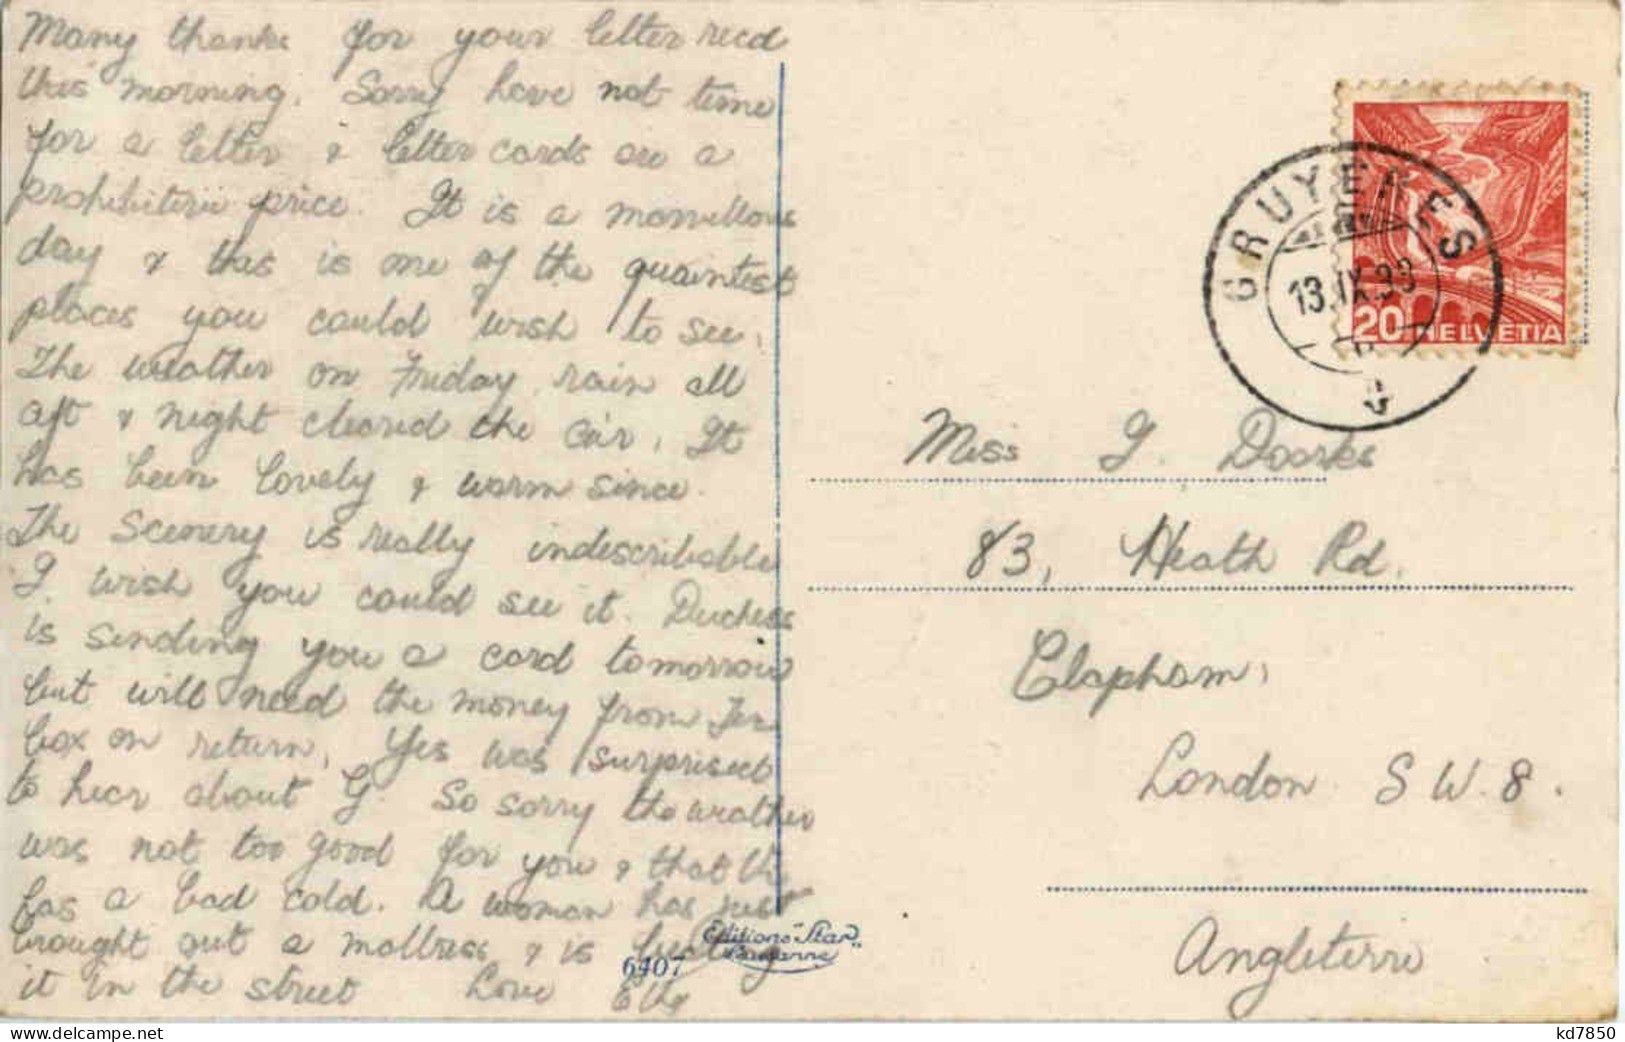 Many thanks for your letter recd
this morning. Sorry have not time
for a letter & letter cards are a
prohibitive price. It is a marvellous
day & this is one of the quaintest
places you could wish to see.
The weather on Friday, rain all
aft & night cleared the air. It
has been lovely & warm since.
The scenery is really indescribable
I wish you could see it. Duchess
is sending you a card tomorrow
but will need the money from
box on return. Yes was surprised
to hear about G. So sorry the weather
was not too good for you & that
has a bad cold. A woman has just
brought out a mattress & is beating
it in the street Love
GRUYERES
13.IX.38
20 HELVETIA
Miss G. Doorks
83, Heath Rd.
Clapham,
London S W. 8.
Angleterre
Editions "Star"
Payerne
6407
kd7850